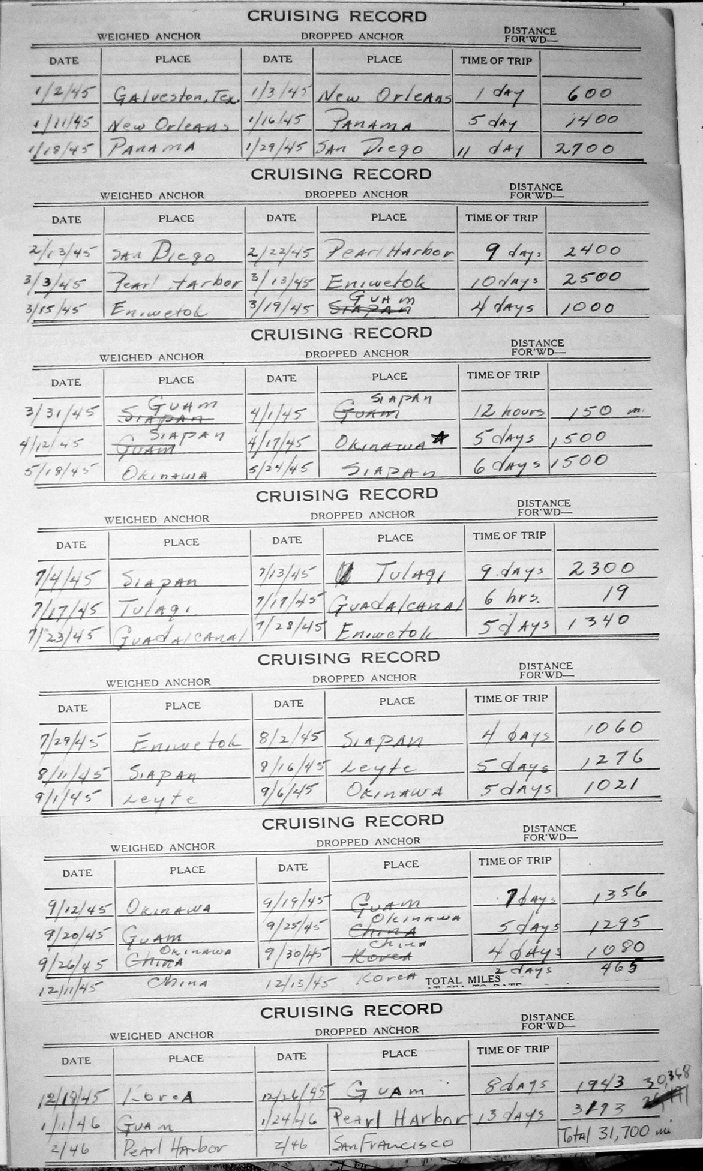 CRUISING RECORD
WEIGHED ANCHOR DROPPED ANCHOR DISTANCE FOR'WD—
DATE PLACE DATE PLACE TIME OF TRIP
1/2/45 Galveston, Tex. 1/3/45 New Orleans 1 day 600
1/11/45 New Orleans 1/16/45 Panama 5 day 1400
1/18/45 Panama 1/29/45 San Diego 11 day 2900
CRUISING RECORD
WEIGHED ANCHOR DROPPED ANCHOR DISTANCE FOR'WD—
DATE PLACE DATE PLACE TIME OF TRIP
2/13/45 San Diego 2/22/45 Pearl Harbor 9 days 2400
3/3/45 Pearl Harbor 3/13/45 Eniwetok 10 days 2500
3/15/45 Eniwetok 3/19/45 Guam Siapan 4 days 1000
CRUISING RECORD
WEIGHED ANCHOR DROPPED ANCHOR DISTANCE FOR'WD—
DATE PLACE DATE PLACE TIME OF TRIP
3/31/45 Guam Siapan 4/1/45 Siapan Guam 12 hours 150 m.
4/12/45 Siapan Guam 4/17/45 Okinawa★ 5 days 1500
5/18/45 Okinawa 5/24/45 Siapan 6 days 1500
CRUISING RECORD
WEIGHED ANCHOR DROPPED ANCHOR DISTANCE FOR'WD—
DATE PLACE DATE PLACE TIME OF TRIP
7/4/45 Siapan 7/13/45 Tulagi 9 days 2300
7/17/45 Tulagi 7/17/45 Guadalcanal 6 hrs. 19
7/23/45 Guadalcanal 7/28/45 Eniwetok 5 days 1340
CRUISING RECORD
WEIGHED ANCHOR DROPPED ANCHOR DISTANCE FOR'WD—
DATE PLACE DATE PLACE TIME OF TRIP
7/29/45 Eniwetok 8/2/45 Siapan 4 days 1060
8/11/45 Siapan 8/16/45 Leyte 5 days 1276
9/1/45 Leyte 9/6/45 Okinawa 5 days 1021
CRUISING RECORD
WEIGHED ANCHOR DROPPED ANCHOR DISTANCE FOR'WD—
DATE PLACE DATE PLACE TIME OF TRIP
9/12/45 Okinawa 9/19/45 Guam 7 days 1356
9/20/45 Guam 9/25/45 Okinawa China 5 days 1295
9/26/45 Okinawa China 9/30/45 China Korea 4 days 1080
12/11/45 China 12/13/45 Korea TOTAL MILES 2 days 465
CRUISING RECORD
WEIGHED ANCHOR DROPPED ANCHOR DISTANCE FOR'WD—
DATE PLACE DATE PLACE TIME OF TRIP
12/18/45 Korea 12/26/45 Guam 8 days 1943 30,368
1/11/46 Guam 1/24/46 Pearl Harbor 13 days 3193
2/46 Pearl Harbor 2/46 San Francisco Total 31,700 mi